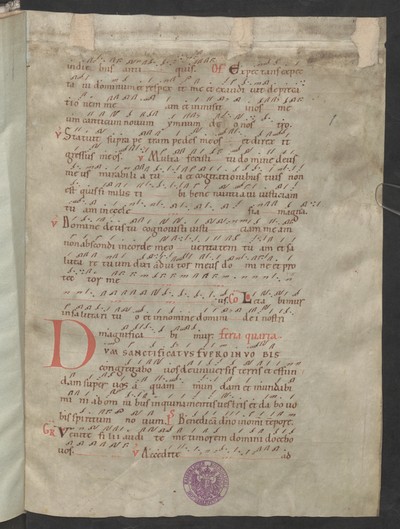 indie bus anti quis. Of Expectans expec
ta ui dominum et respex it me et exaudi uit depreca
tio nem me am et inmisit inos me
um canticum nouum ymnum de o nos tro.
V Statuit supra pe tram pedes meos et direx it
gressus meos. V Multa fecisti tu domine deus
meus mirabilia tu a et cogitationibus tuis non
est quis similis ti bi bene nuntia ui iusticiam
tu am in eccle sia magna.
V Domine deus tu cognouisti iusti ciam me am
non abscondi in corde meo ueritatem tu am et sa
luta re tuum dixi adiu tor meus do mi ne et pro
tec tor me
us. Co Leta bimur
in saluta ri tu o et in nomine domini dei nostri
magnifica bi mur feria quarta.
DUM SANCTIFICATUS FUERO IN UO BIS
congregabo uos de uniuersis terris et effun
dam super uos a quam mun dam et mundabi
mi ni ab omni bus inquinamentis uestris et da bo uo
bis spiritum no uum. Ps Benedicam dno in omni tempore.
GR Venite fi lii audi te me timorem domini docebo
uos. V Accedite ad